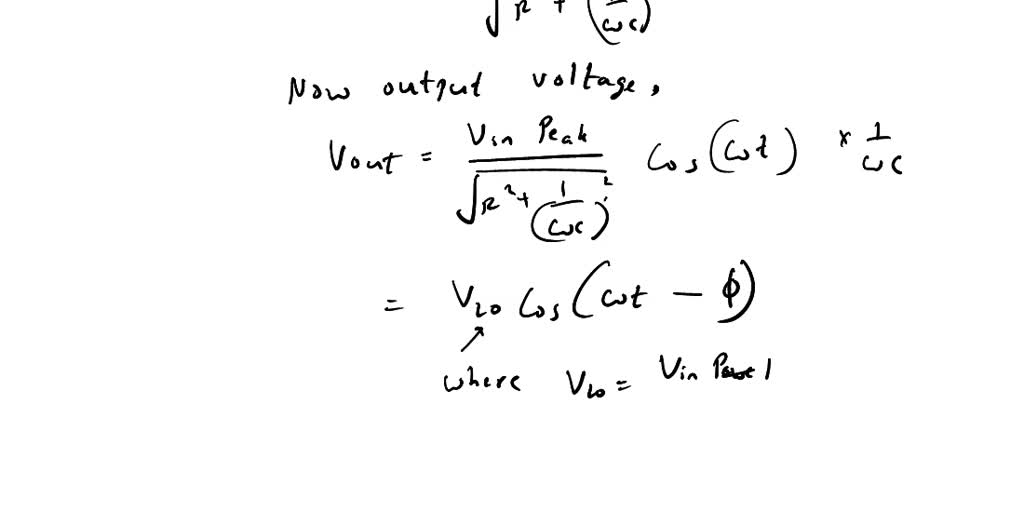 √R + (1/ωc)
Now output voltage,
Vout = Vin Peak / √R² + (1/ωc)² Cos (ωt) × 1/ωc
= V20 Cos (ωt - ϕ)
where V20 = Vin